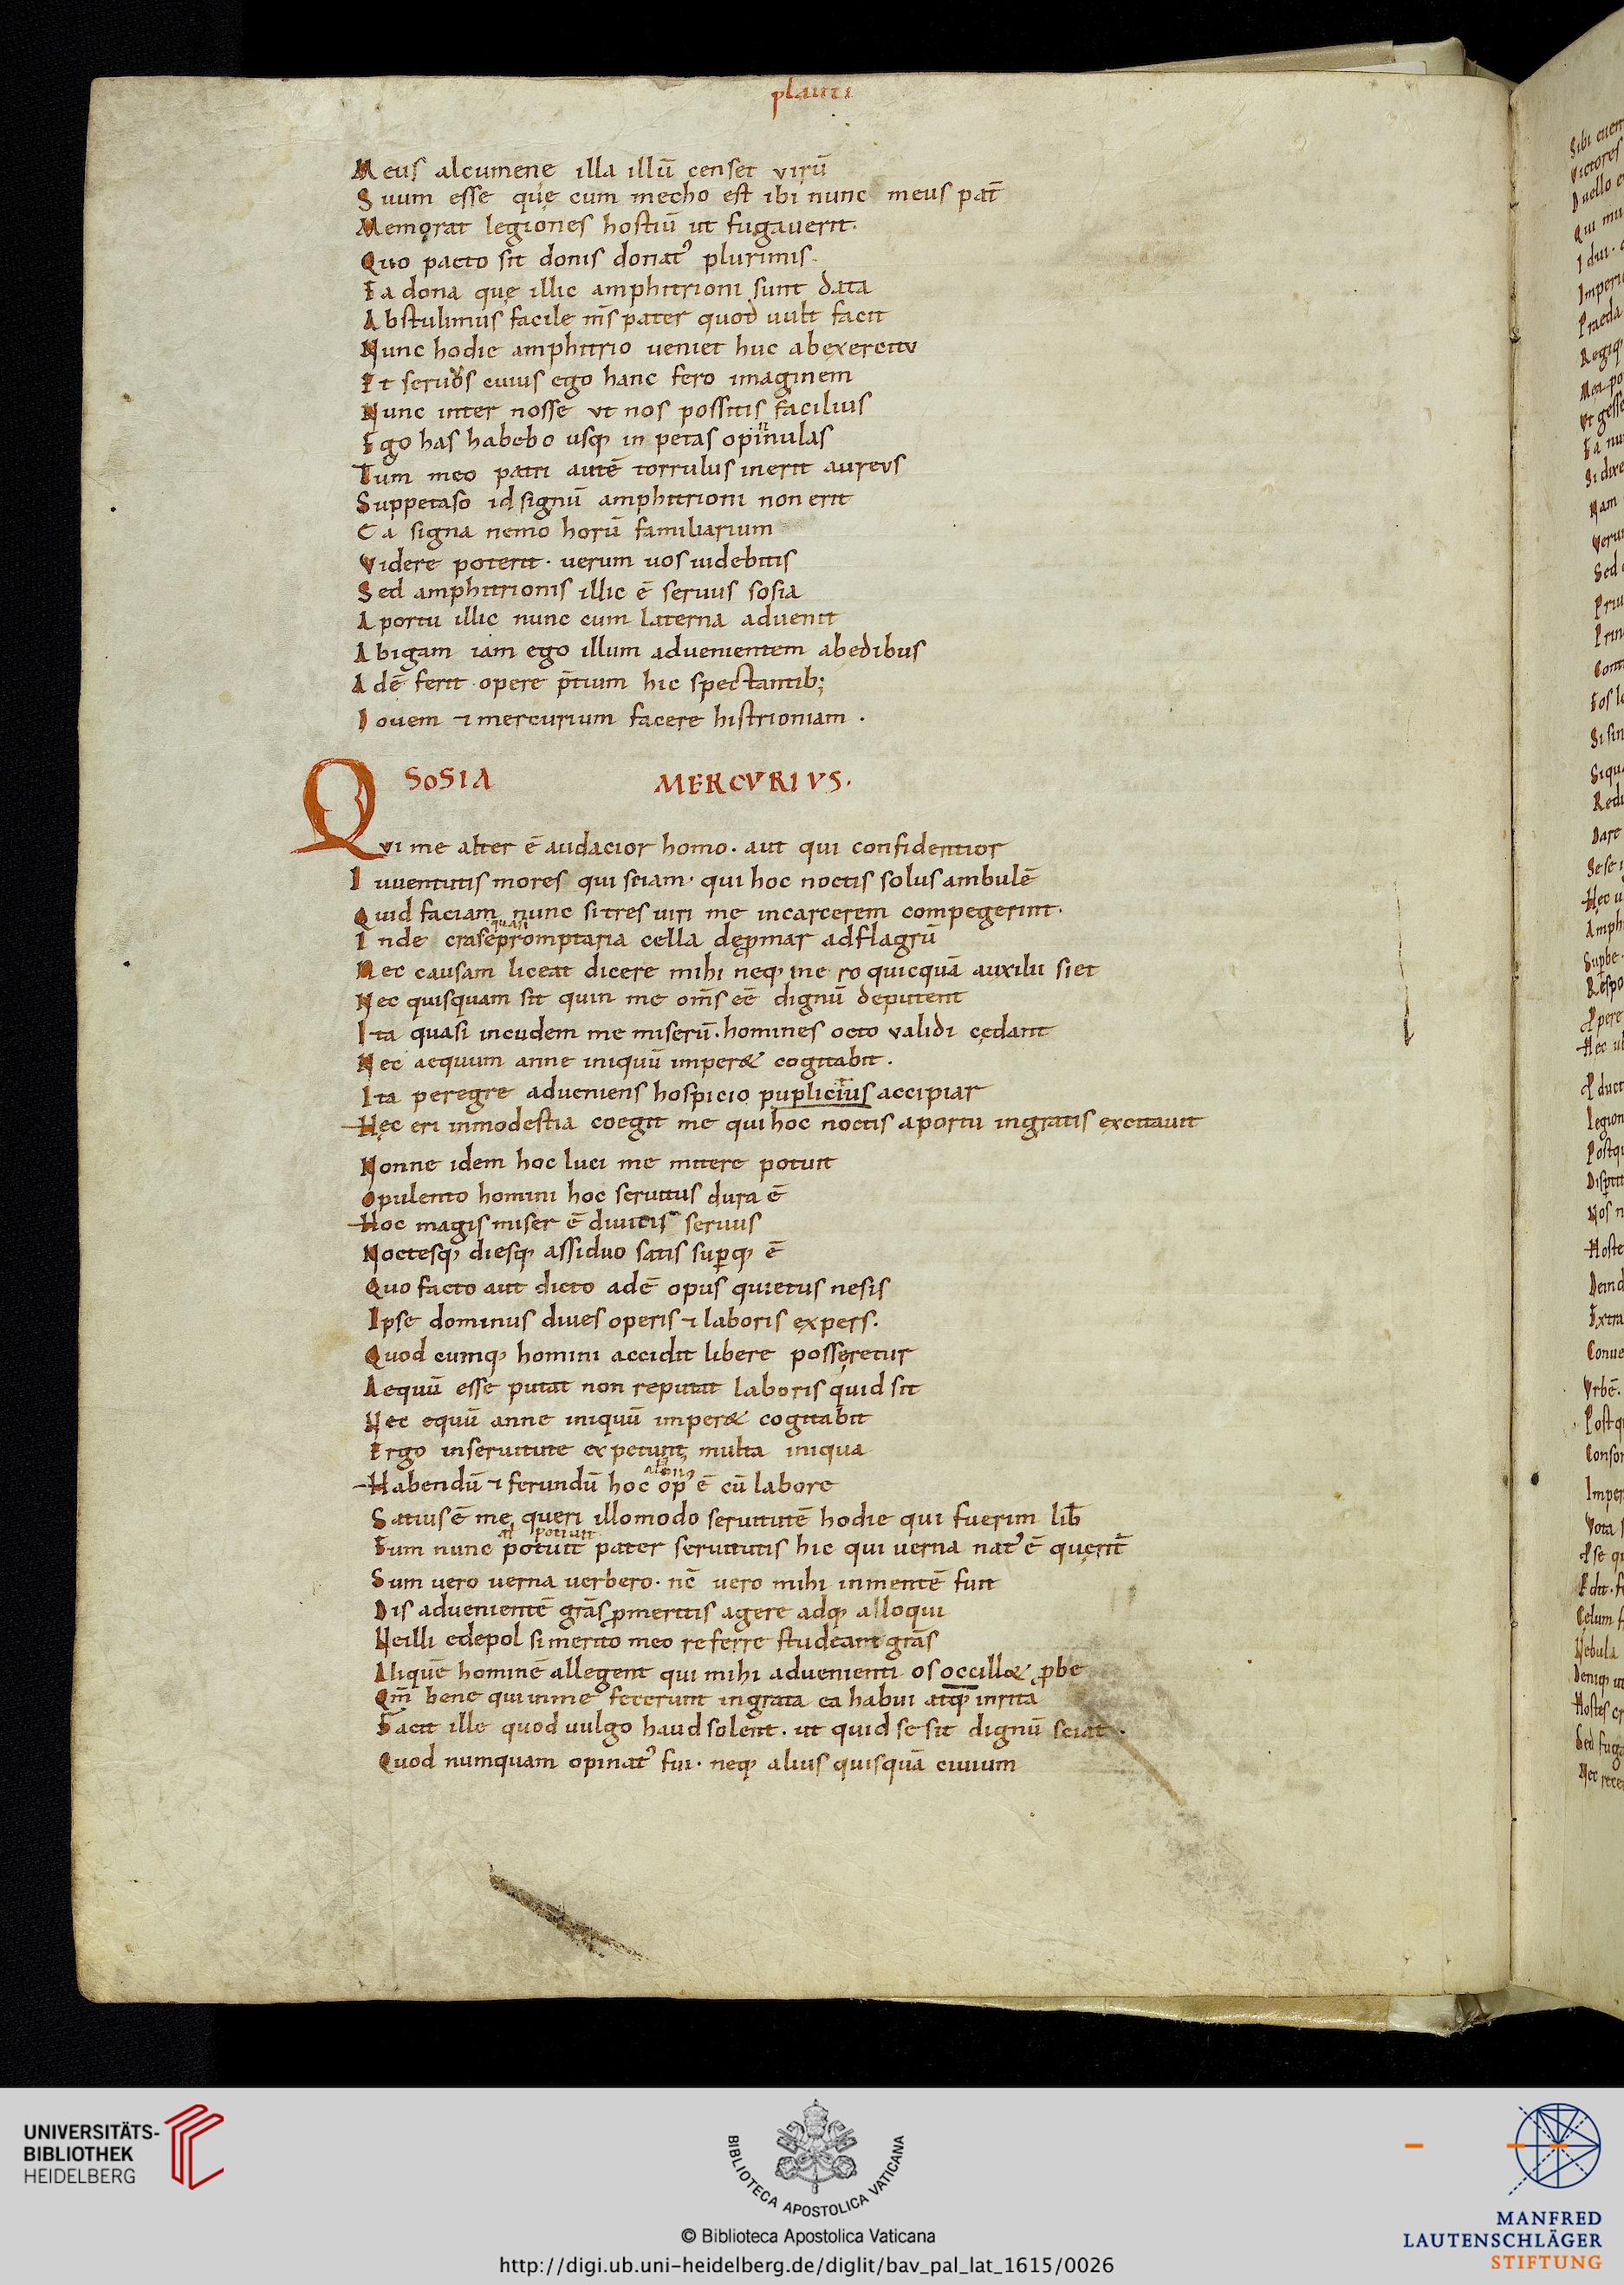 plauti
Meus alcumene illa illū censet virū
Suum esse quę cum mecho est ibi nunc meus pat̄
Memorat legiones hostiū ut fugauerit.
Quo pacto sit donis donat᾽ plurimis.
Ea dona quę illic amphitrioni sunt data
Abstulimus facile m̄s pater quod uult facit
Nunc hodie amphitrio ueniet huc abexercitu
Et seruos cuius ego hanc fero imaginem
Nunc inter nosse ut nos possitis facilius
Ego has habebo usq; in petas opinnulas
Tum meo patri autē torrulus inerit aureus
Suppetaso id signū amphitrioni non erit
Ea signa nemo horū familiarium
Videre poterit. uerum uos uidebitis
Sed amphitrionis illic ē seruus sosia
A portu illic nunc cum laterna aduenit
Abigam iam ego illum aduenientem abedibus
Adē ferit opere p̄tium hic spectantib;
Iouem ⁊ mercurium facere histrioniam .
SOSIA MERCVRIVS.
Qvi me alter ē audacior homo. aut qui confidentior
Iuuentutis mores qui sciam. qui hoc noctis solus ambulē
Quid faciam nunc si tres uiri me incarcerem compegerint.
quasi
Inde crasepromptaria cella dep̱mar adflagrū
Nec causam liceat dicere mihi neq; me ro quicquā auxilii siet
Nec quisquam sit quin me om̄s eē dignū deputent
Ita quasi incudem me miserū. homines octo validi cędant
Nec aequum anne iniquū imper& cogitabit.
Ita peregre adueniens hospicio puplicitus accipiar
Hęc eri inmodestia coegit me qui hoc noctis aportu ingratis excitauit
Nonne idem hoc luci me mittere potuit
Opulento homini hoc seruitus dura ē
Hoc magis miser ē diuitis seruus
Noctesq; diesq; assiduo satis sup̱q; ē
Quo facto aut dicto adē opus quietus nesis
Ipse dominus diues operis ⁊ laboris expers.
Quod cumq; homini accidit libere posseretur
Aequū esse putat non reputat laboris quid sit
Nec equū anne iniquū imper& cogitabit
Ergo inseruitute expetunt multa iniqua
Habendū ⁊ ferundū hoc op᾽ ē cū labore
Satius ē me queri illomodo seruitutē hodie qui fuerim lib̄
al potiuit
Eum nunc potuit pater seruitutis hic qui uerna nat᾽ ē querit̄
Sum uero uerna uerbero. nc̄ uero mihi inmentē fuit
Dis aduenientē grās p̱meritis agere adq; alloqui
Neilli edepol si merito meo referre studeant grās
Aliquē hominē allegent qui mihi aduenienti os occill& p̱be
Qm̄ bene quiinme fecerunt ingrata ea habui atq; inrita
Facit ille quod uulgo haud solent. ut quid se sit dignū sciat.
Quod numquam opinat᾽ fui. neq; alius quisquā ciuium
UNIVERSITÄTS-
BIBLIOTHEK
HEIDELBERG
BIBLIOTECA APOSTOLICA VATICANA
© Biblioteca Apostolica Vaticana
http://digi.ub.uni-heidelberg.de/diglit/bav_pal_lat_1615/0026
MANFRED
LAUTENSCHLÄGER
STIFTUNG